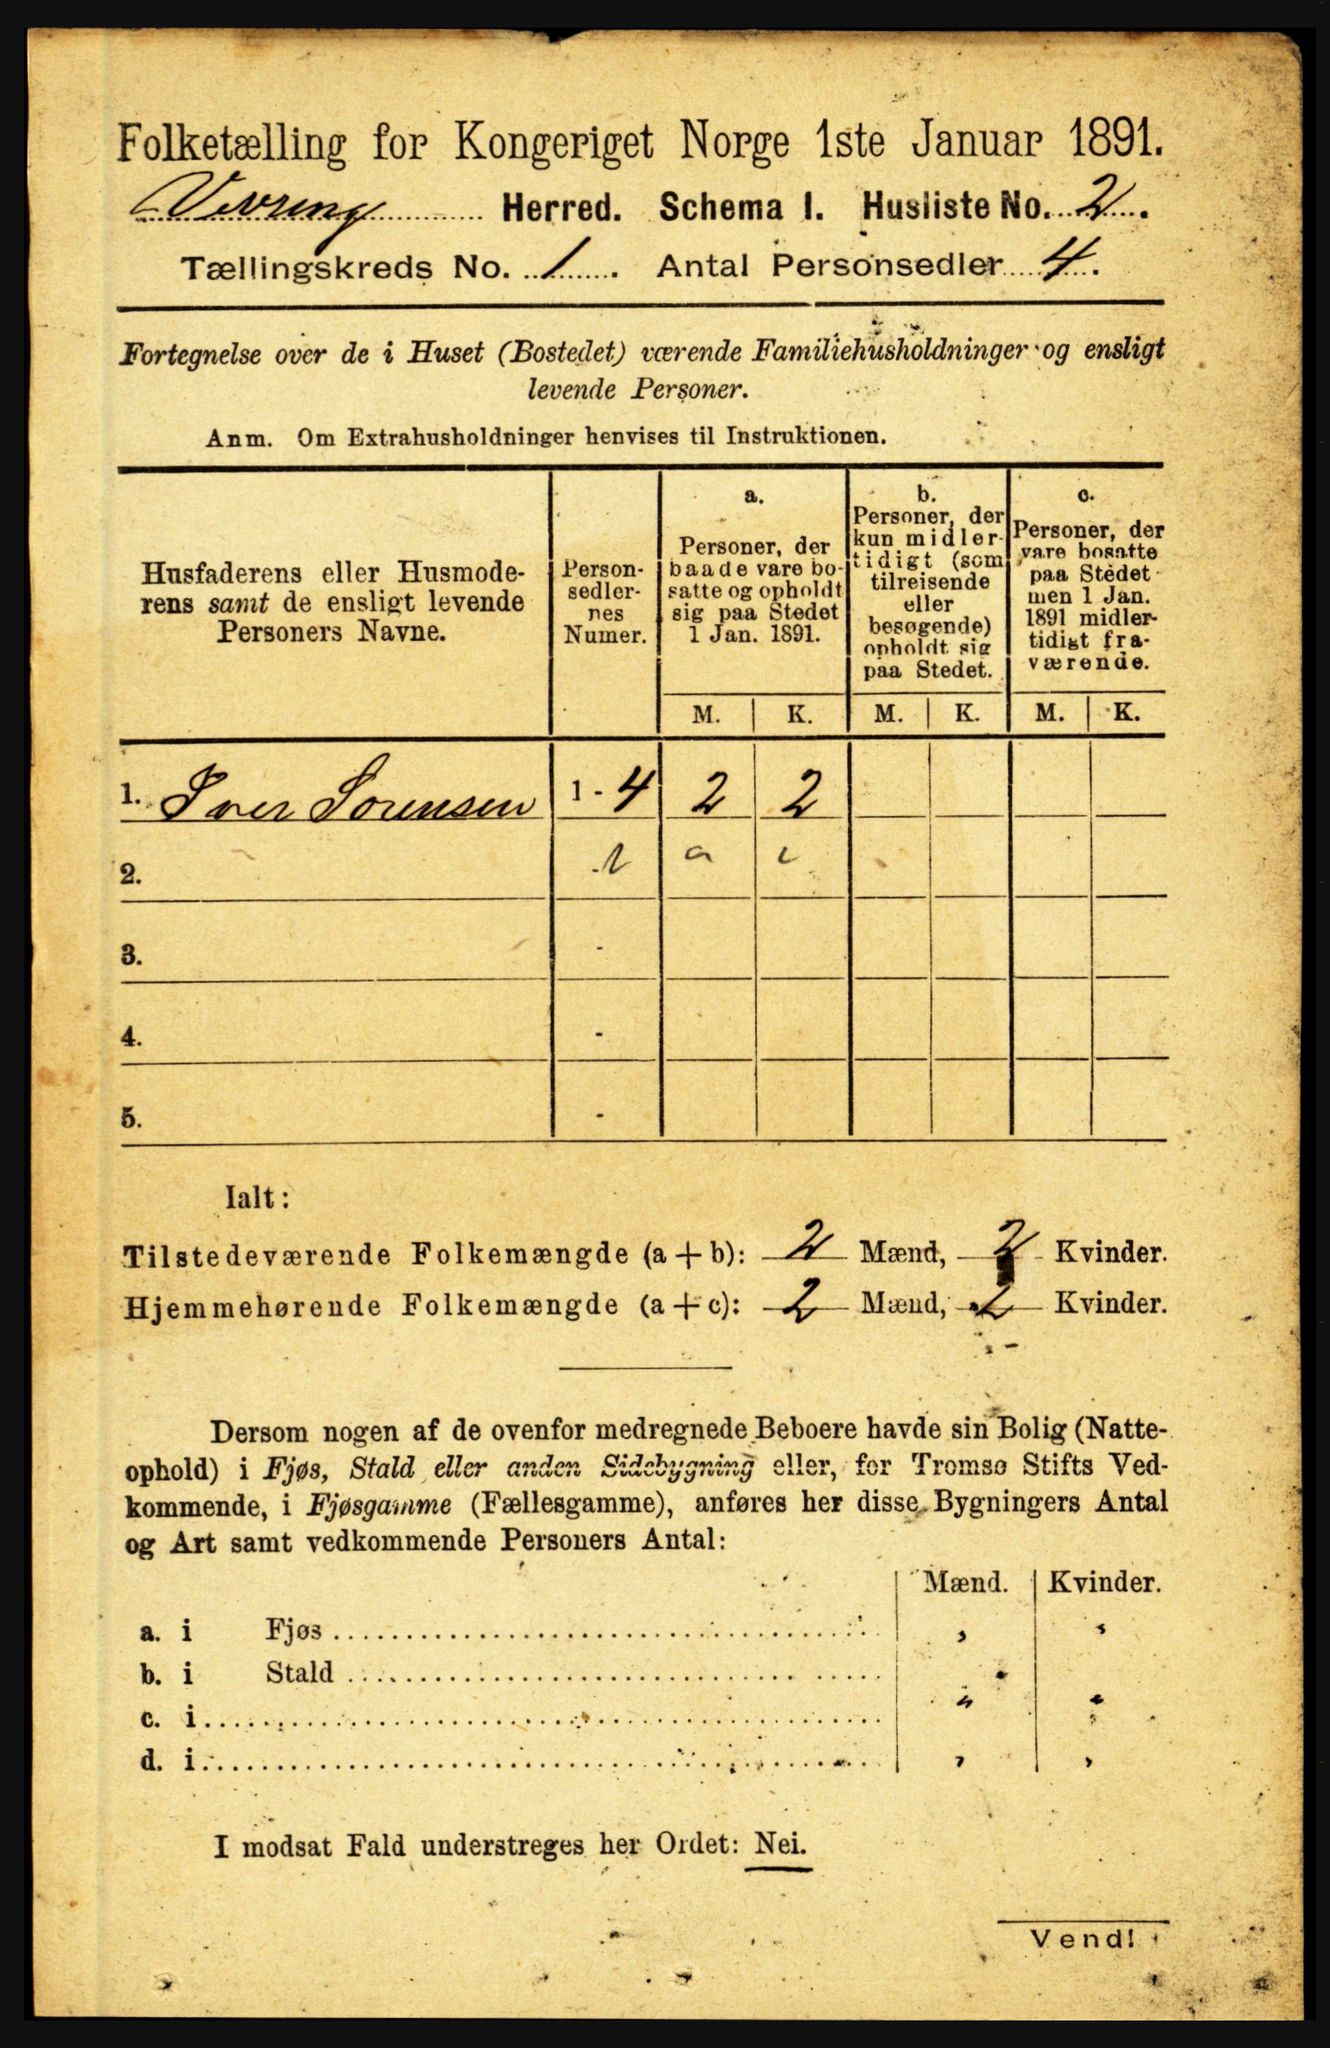 Folketælling for Kongeriget Norge 1ste Januar 1891.
Vevring Herred. Schema I. Husliste No. 2.
Tællingskreds No. 1. Antal Personsedler 4.
Fortegnelse over de i Huset (Bostedet) værende Familiehusholdninger og ensligt
levende Personer.
Anm. Om Extrahusholdninger henvises til Instruktionen.
Husfaderens eller Husmode-
rens samt de ensligt levende
Personers Navne.
Person-
sedler-
nes
Numer.
a.
Personer, der
baade vare bo-
satte og opholdt
sig paa Stedet
1 Jan. 1891.
b.
Personer, der
kun midler-
tidigt (som
tilreisende
eller
besøgende)
opholdt sig
paa Stedet.
c.
Personer, der
vare bosatte
paa Stedet
men 1 Jan.
1891 midler-
tidigt fra-
værende.
M. K. M. K. M. K.
1. Iver Sørensen 1 - 4 2 2
2.
3. -
4. -
5. -
Ialt:
Tilstedeværende Folkemængde (a + b): 2 Mænd, 2 Kvinder.
Hjemmehørende Folkemængde (a + c): 2 Mænd, 2 Kvinder.
Dersom nogen af de ovenfor medregnede Beboere havde sin Bolig (Natte-
ophold) i Fjøs, Stald eller anden Sidebygning eller, for Tromsø Stifts Ved-
kommende, i Fjøsgamme (Fællesgamme), anføres her disse Bygningers Antal
og Art samt vedkommende Personers Antal:
Mænd. Kvinder.
a. i Fjøs
b. i Stald
c. i
d. i
I modsat Fald understreges her Ordet: Nei.
Vend!